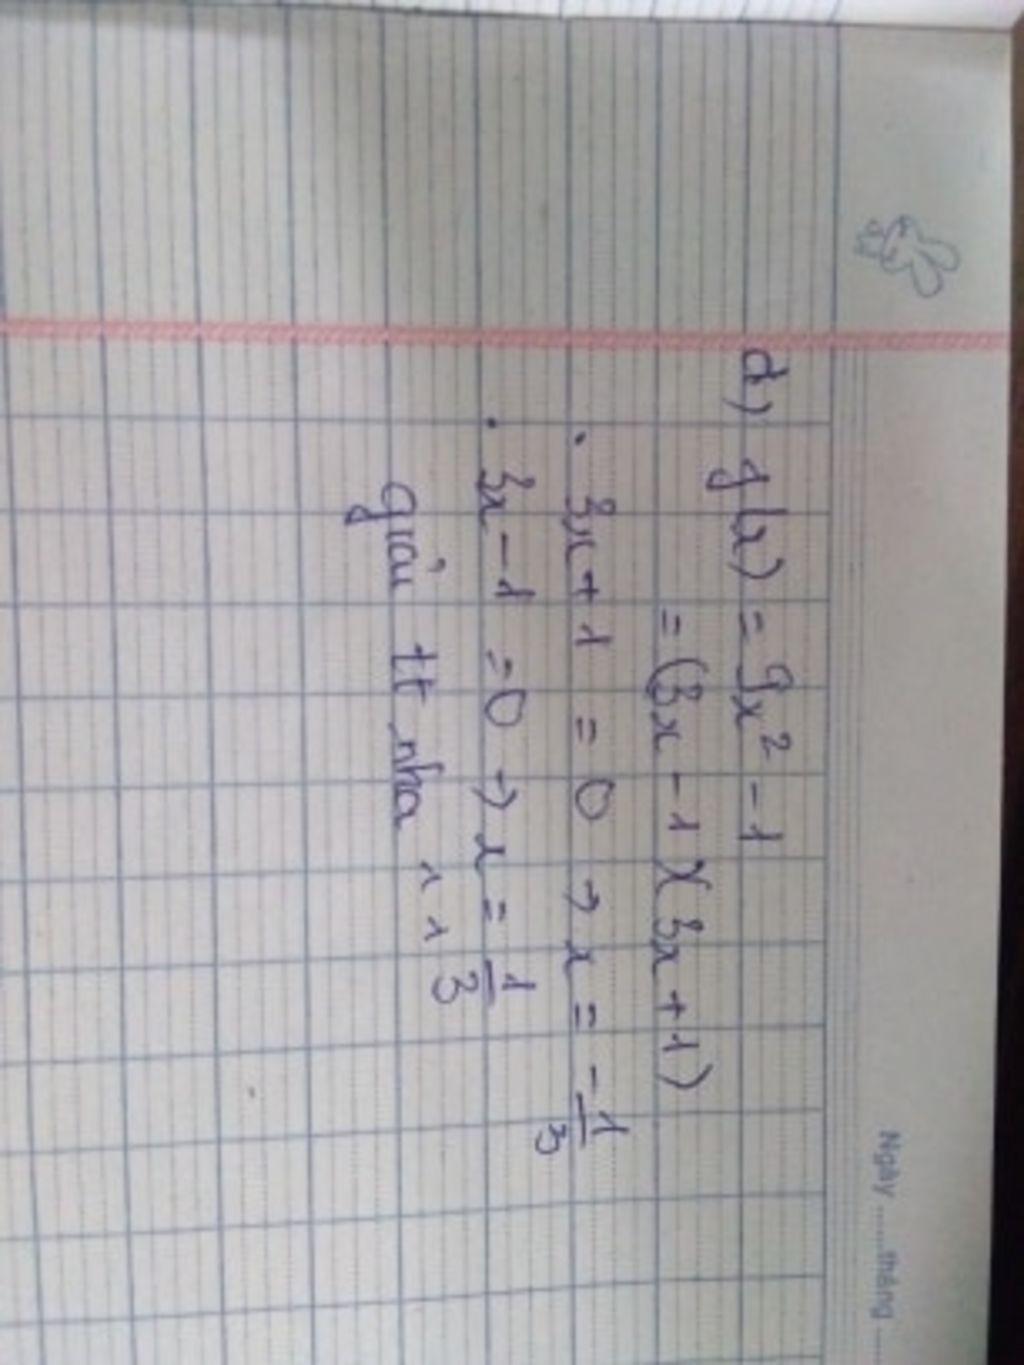 Ngày ........ tháng ......
d) g(x) = 9x² - 1
= (3x - 1)(3x + 1)
. 3x + 1 = 0 → x = -1/3
. 3x - 1 = 0 → x = 1/3
giải tt nha